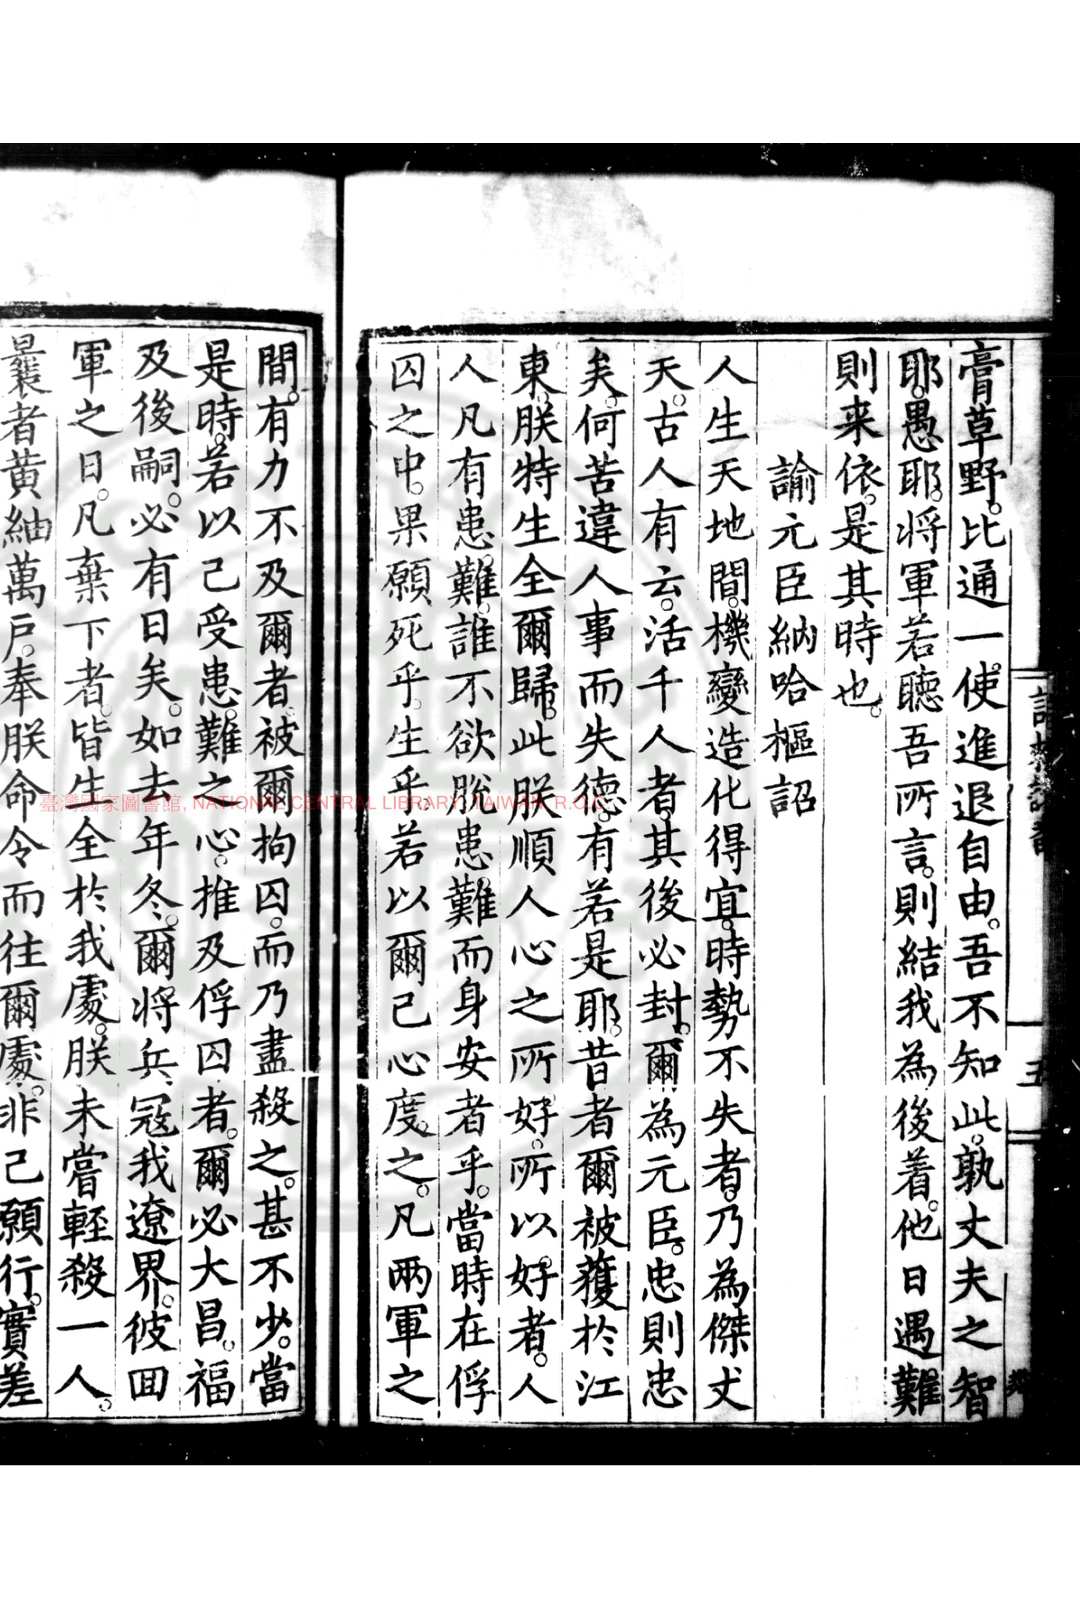 膏草野。比通一使。進退自由。吾不知此。孰丈夫之智
耶。愚耶。将軍若聽吾所言。則結我為後着。他日遇難
則来依。是其時也。
諭元臣納哈樞詔
人生天地間。機變造化得宜。時勢不失者。乃為傑丈
天。古人有云。活千人者。其後必封。爾為元臣。忠則忠
矣。何苦違人事而失德。有若是耶。昔者爾被獲於江
東。朕特生全爾歸。此朕順人心之所好。所以好者。人
人凡有患難。誰不欲脫患難而身安者乎。當時在俘
囚之中。果願死乎。生乎。若以爾己心度之。凡兩軍之
間。有力不及爾者。被爾拘囚。而乃盡殺之。甚不少。當
是時。若以己受患難之心。推及俘囚者。爾必大昌。福
及後嗣。必有日矣。如去年冬。爾將兵寇我遼界。彼囬
軍之日。凡棄下者。皆生全於我處。朕未嘗輕殺一人。
曩者黄紬萬戶。奉朕命令而往爾處。非己願行。實差
五
臺灣國家圖書館, NATIONAL CENTRAL LIBRARY, TAIWAN, R.O.C.